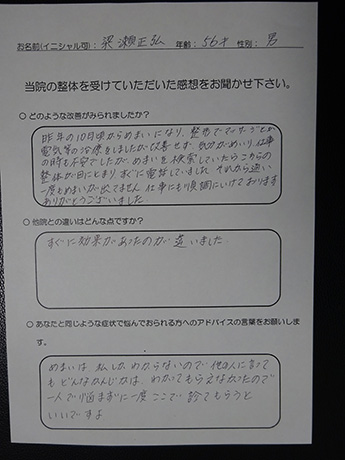 お名前(イニシャル可): 梁瀬正弘 年齢: 56才 性別: 男
当院の整体を受けていただいた感想をお聞かせ下さい。
○ どのような改善がみられましたか?
昨年の10月頃からめまいになり、整骨でマッサージとか
電気等の治療をしましたが改善せず、気分がめいり、仕事
の時も不安でしたが、めまいを検索していたらこちらの
整体が目にとまり、すぐに電話していました。それから通い、
一度もめまいが出てません 仕事にも順調にいけております
ありがとうございました。
○ 他院との違いはどんな点ですか?
すぐに効果があったのが違いました。
○ あなたと同じような症状で悩んでおられる方へのアドバイスの言葉をお願いしま
す。
めまいは、私しかわからないので他の人に言って
もどんなかんじかは、わかってもらえなかったので
一人で悩まずに一度ここで診てもらうと
いいですよ